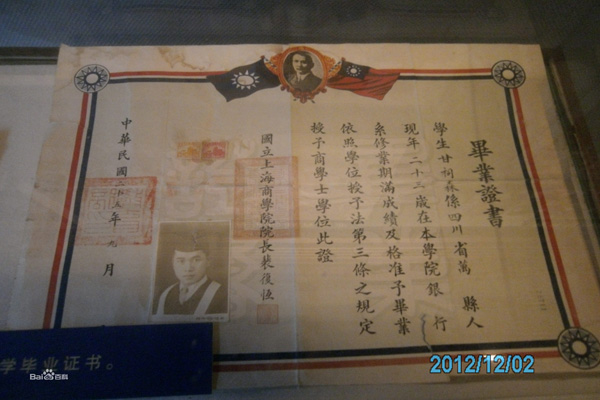 畢業證書
學生甘祠森係四川省萬縣人
現年二十三歲在本學院銀行
系修業期滿成績及格准予畢業
依照學位授予法第三條之規定
授予商學士學位此證
國立上海商學院院長裴復恒
中華民國二十五年九月
学毕业证书。
Bai百科
2012/12/02